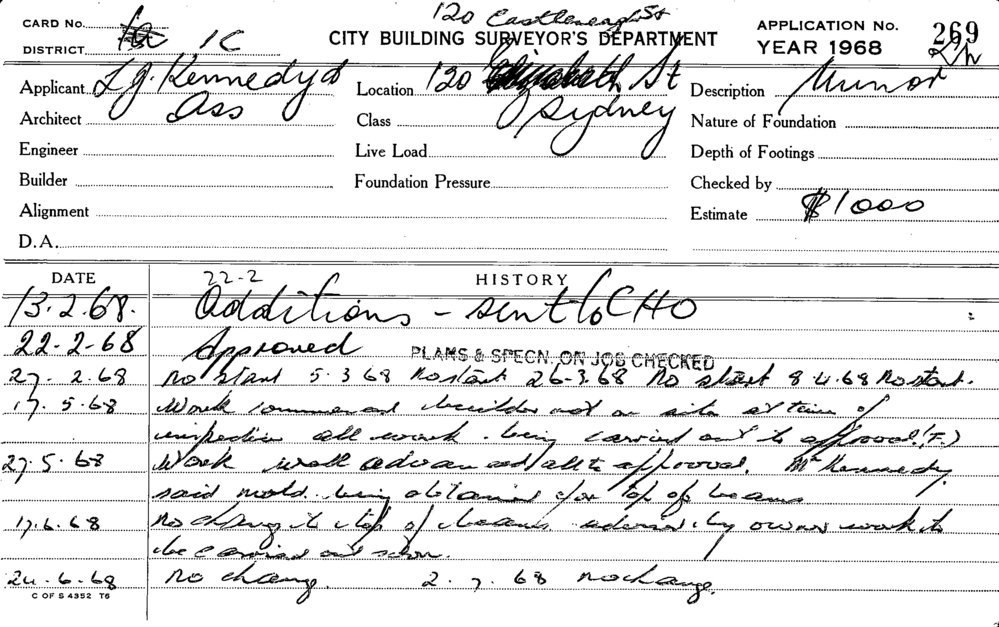 120 Castlereagh St
CARD No.
DISTRICT 1C
CITY BUILDING SURVEYOR'S DEPARTMENT
APPLICATION No. 269
YEAR 1968
Applicant L J Kennedy &
Location 120 Elizabeth St
Description Minor
Architect Ass
Class Sydney
Nature of Foundation
Engineer
Live Load
Depth of Footings
Builder
Foundation Pressure
Checked by
Alignment
Estimate $1000
D.A.
DATE
22-2
HISTORY
13.2.68. Additions - sent to CHO
22-2-68 Approved PLANS & SPECN. ON JOB CHECKED
27. 2.68 No start 5.3.68 No start 26-3.68 No start 8.4.68 No start.
17. 5.68 Work commenced builder not on site at time of
inspection all work being carried out to approval. (F.)
27.5.68 Work well advanced all to approval. Mr Kennedy
said mold. being obtained for top of beams
17.6.68 No change to top of beams advised by owner work to
be carried out soon.
24.6.68 No change. 2.7.68 No change.
C OF S 4352 T6